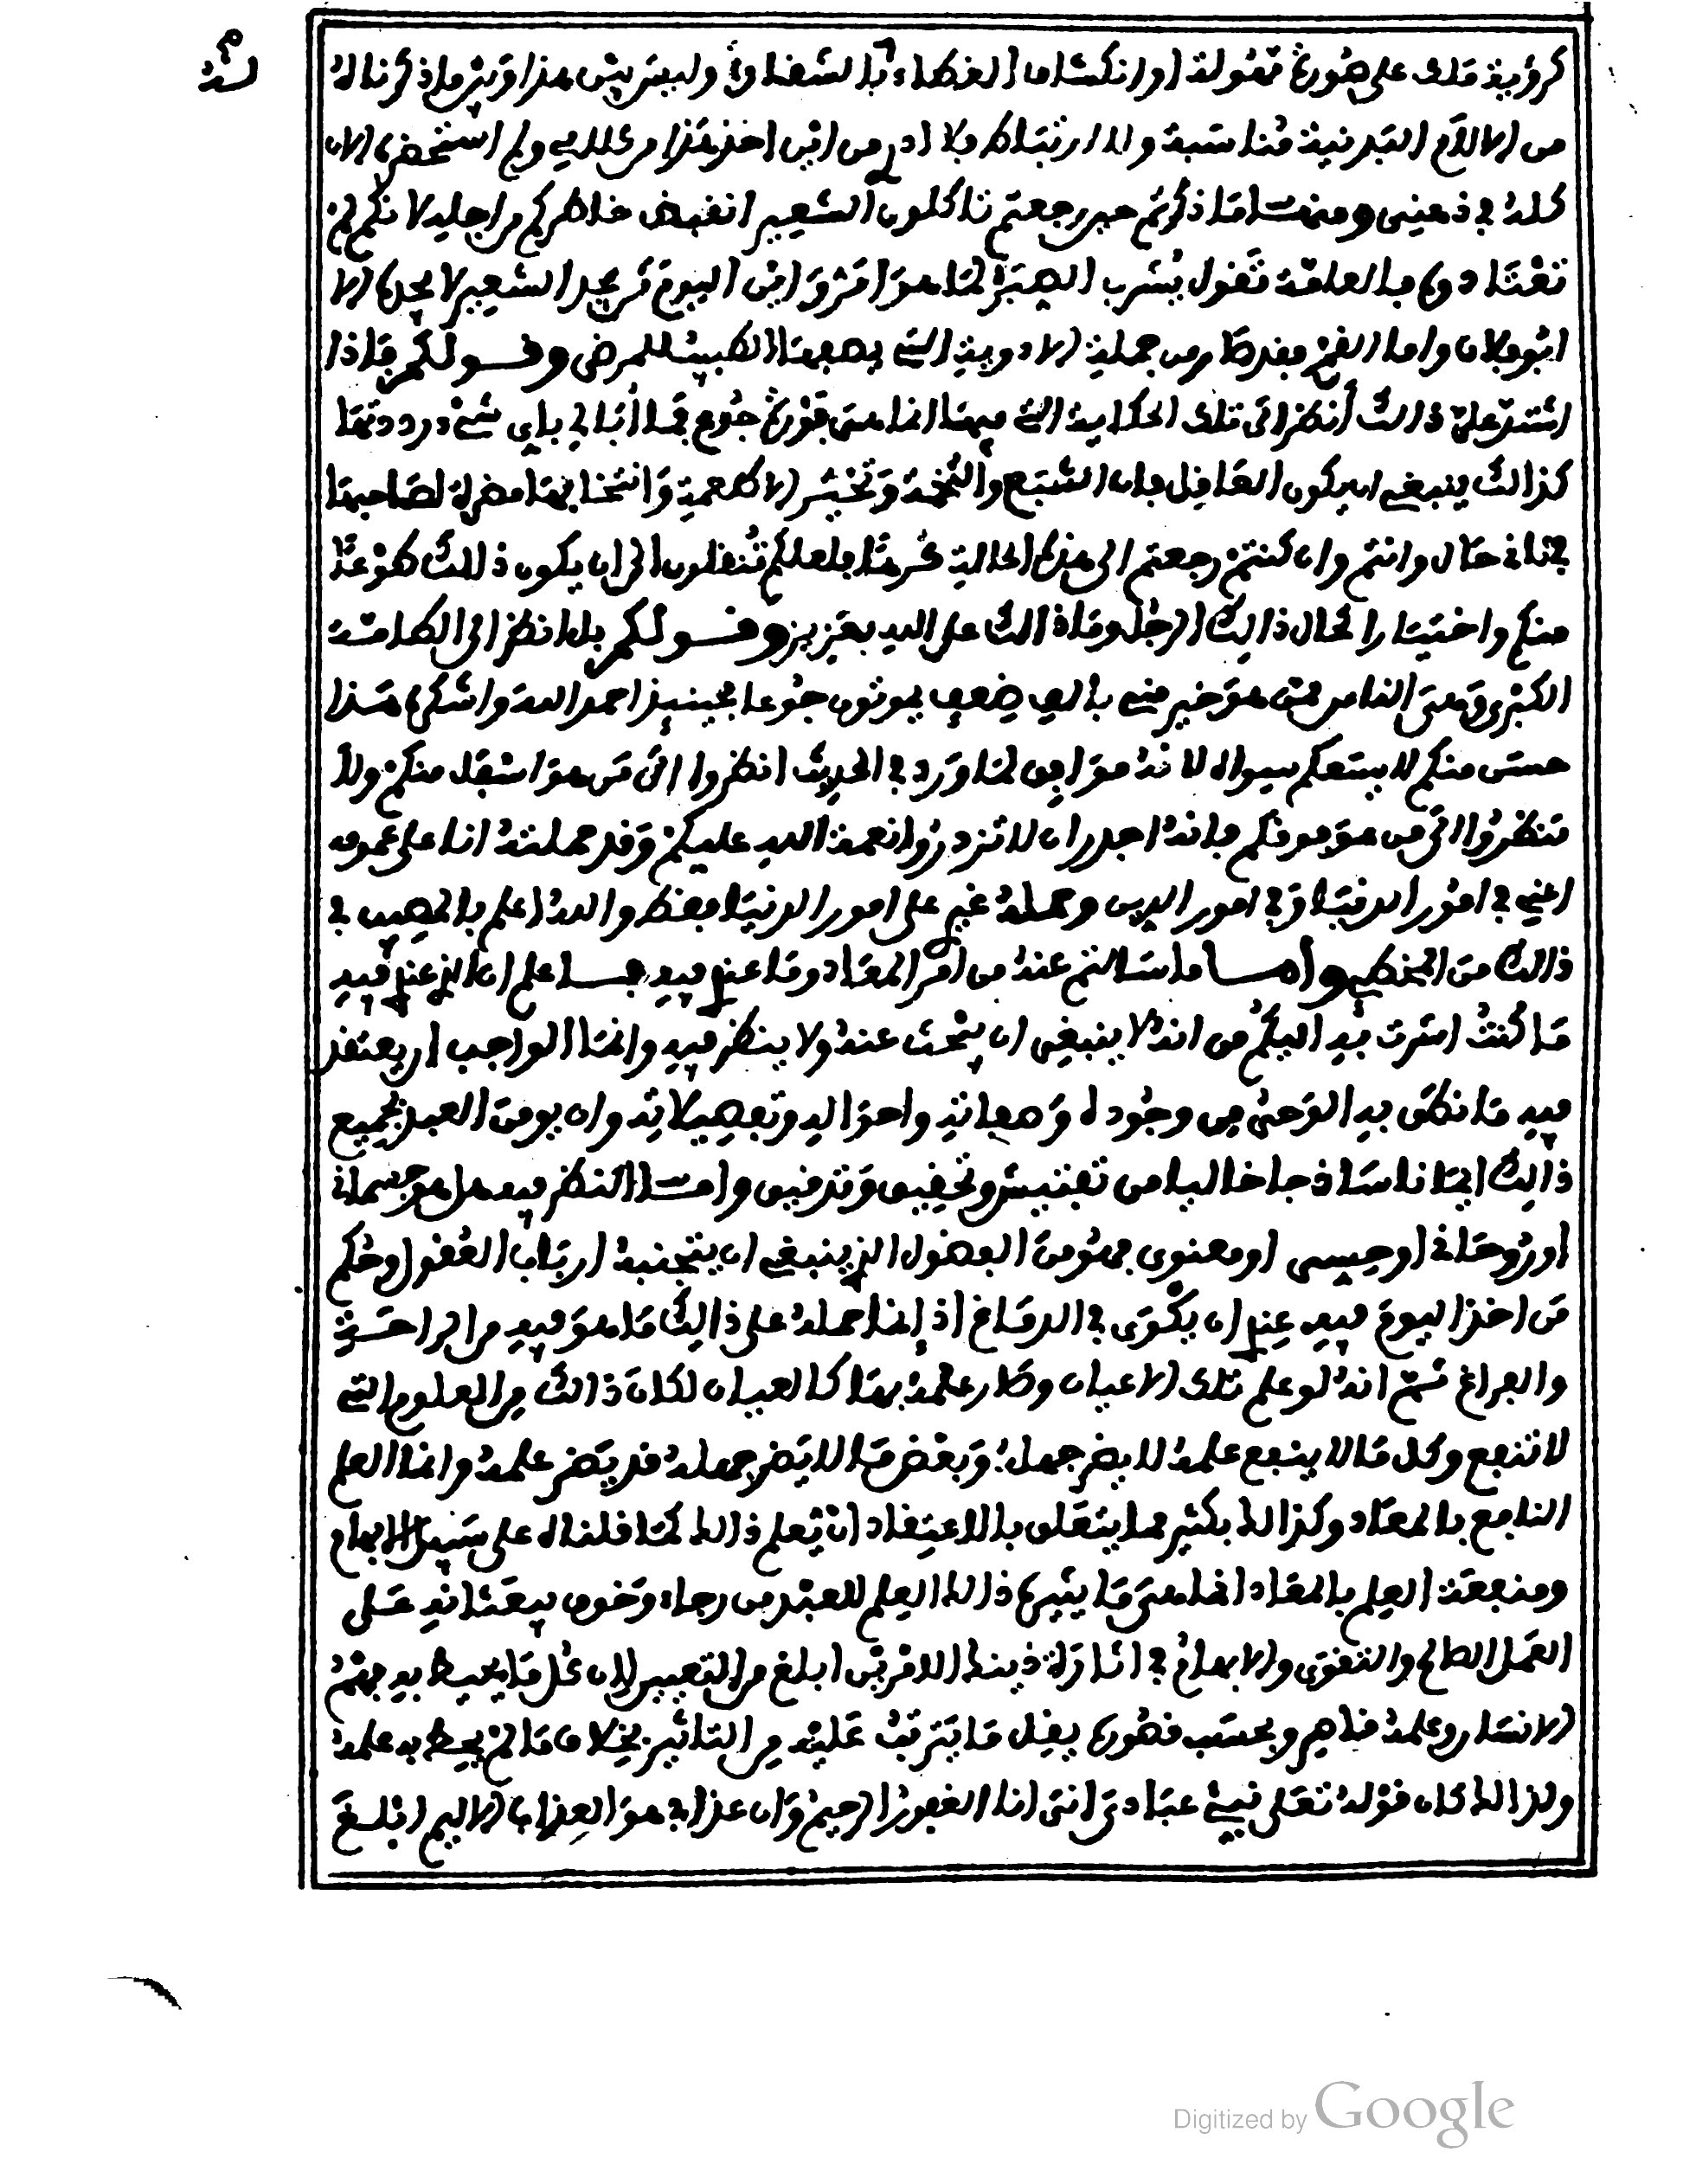 كرؤية ملك على صورة مهولة او انكشاف الغطاء بالشقاوة وليس بين هذا وبين ما ذكرناله
من الالام البدنية مناسبة ولا ارتباط فلا ادري من اين اخذ هذا من كلامي ولم استحضر الان
كله في ذهني ومنها ما ذكرتم حين رجعتم تاكلون الشعير انقبض خاطركم من اجله لانكم لم
تعتادوه فالعامة تقول بشرب الصبر لما هو امر واين اليوم من يجد الشعير لا يجده الا
ابو فلان واما القمح فقد صار من جملة الادوية التي يصفها الطبيب للمرضى وقولكم فاذا
اشتد علي ذالك أنظر الى تلك الحكاية التي فيها انما هي فورة جوع فما أبالي باي شيء رددتها
كذالك ينبغي ان يكون العاقل فان الشبع والتخمة وتخير الاطعمة وانتخابها مضرة لصاحبها
بكل حال وانتم وان كنتم رجعتم الى هذه الحالة كرها فلعلكم تنقلون الى ان يكون ذلك طوعا
منكم واختيارا لحال ذالك الرجل وما ذالك على الله بعزيز وقولكم بل انظر الى الطامة
الكبرى وهي الناس ممن هو خير مني بالف ضعف يموتون جوعا فحينئذ احمد الله واشكره هذا
حسن منكم لا يسعكم سواه لانه موافق لما ورد في الحديث انظروا الى من هو اسفل منكم ولا
تنظروا الى من هو فوقكم فانه اجدر ان لا تزدروا نعمة الله عليكم وقد حملته انا على عمومه
اعني في امور الدنيا وفي امور الدين وحمله غيري على امور الدنيا فقط والله اعلم بالمصيب في
ذالك من المخطي واما ما سالتم عنه من امر المعاد وما عندي فيه فاعلم ان الذي عندي فيه
ما كنت اشرت به اليكم من انه لا ينبغي ان يبحث عنه ولا ينظر فيه وانما الواجب ان يعتقد
فيه ما نطق به الوحي من وجوده وصفاته واحواله وتفصيلاته وان يومن العبد بجميع
ذالك ايمانا ساذجا خاليا من تفتيش وتحقيق وتدقيق واما النظر فيه هل هو جسماني
او روحاني او حسي او معنوي فهو من الفضول الذي ينبغي ان يتجنبه ارباب العقول وحكم
من اخذ اليوم فيه عندي ان يكوى في الدماغ اذ انما حمله على ذالك ما هو فيه من الراحة
والفراغ ثم انه لو علم تلك الاعيان وصار علمه بها كالعيان لكان ذالك من العلوم التي
لا تنفع وكل ما لا ينفع علمه لا يضر جهله وبعض ما لا يضر جهله قد يضر علمه وانما العلم
النافع بالمعاد وكذالك بكثير مما يتعلق بالاعتقاد ان يعلم ذالك كما قلناه على سبيل الابهام
ومنفعة العلم بالمعاد انما هي ما يثيره ذالك العلم للعبد من رجاء وخوف يبعثانه على
العمل الصالح والتقوى والابهام في اثارة ذينك الامرين ابلغ من التعيين لان كل ما يحيط به فهم
الانسان وعلمه فناهر وبحسب قصوره يقل ما يترتب عليه من التاثير بخلاف ما لم يحط به علمه
ولذالك كان قوله تعلى نبيء عبادي انى انا الغفور الرحيم وان عذابي هو العذاب الاليم ابلغ